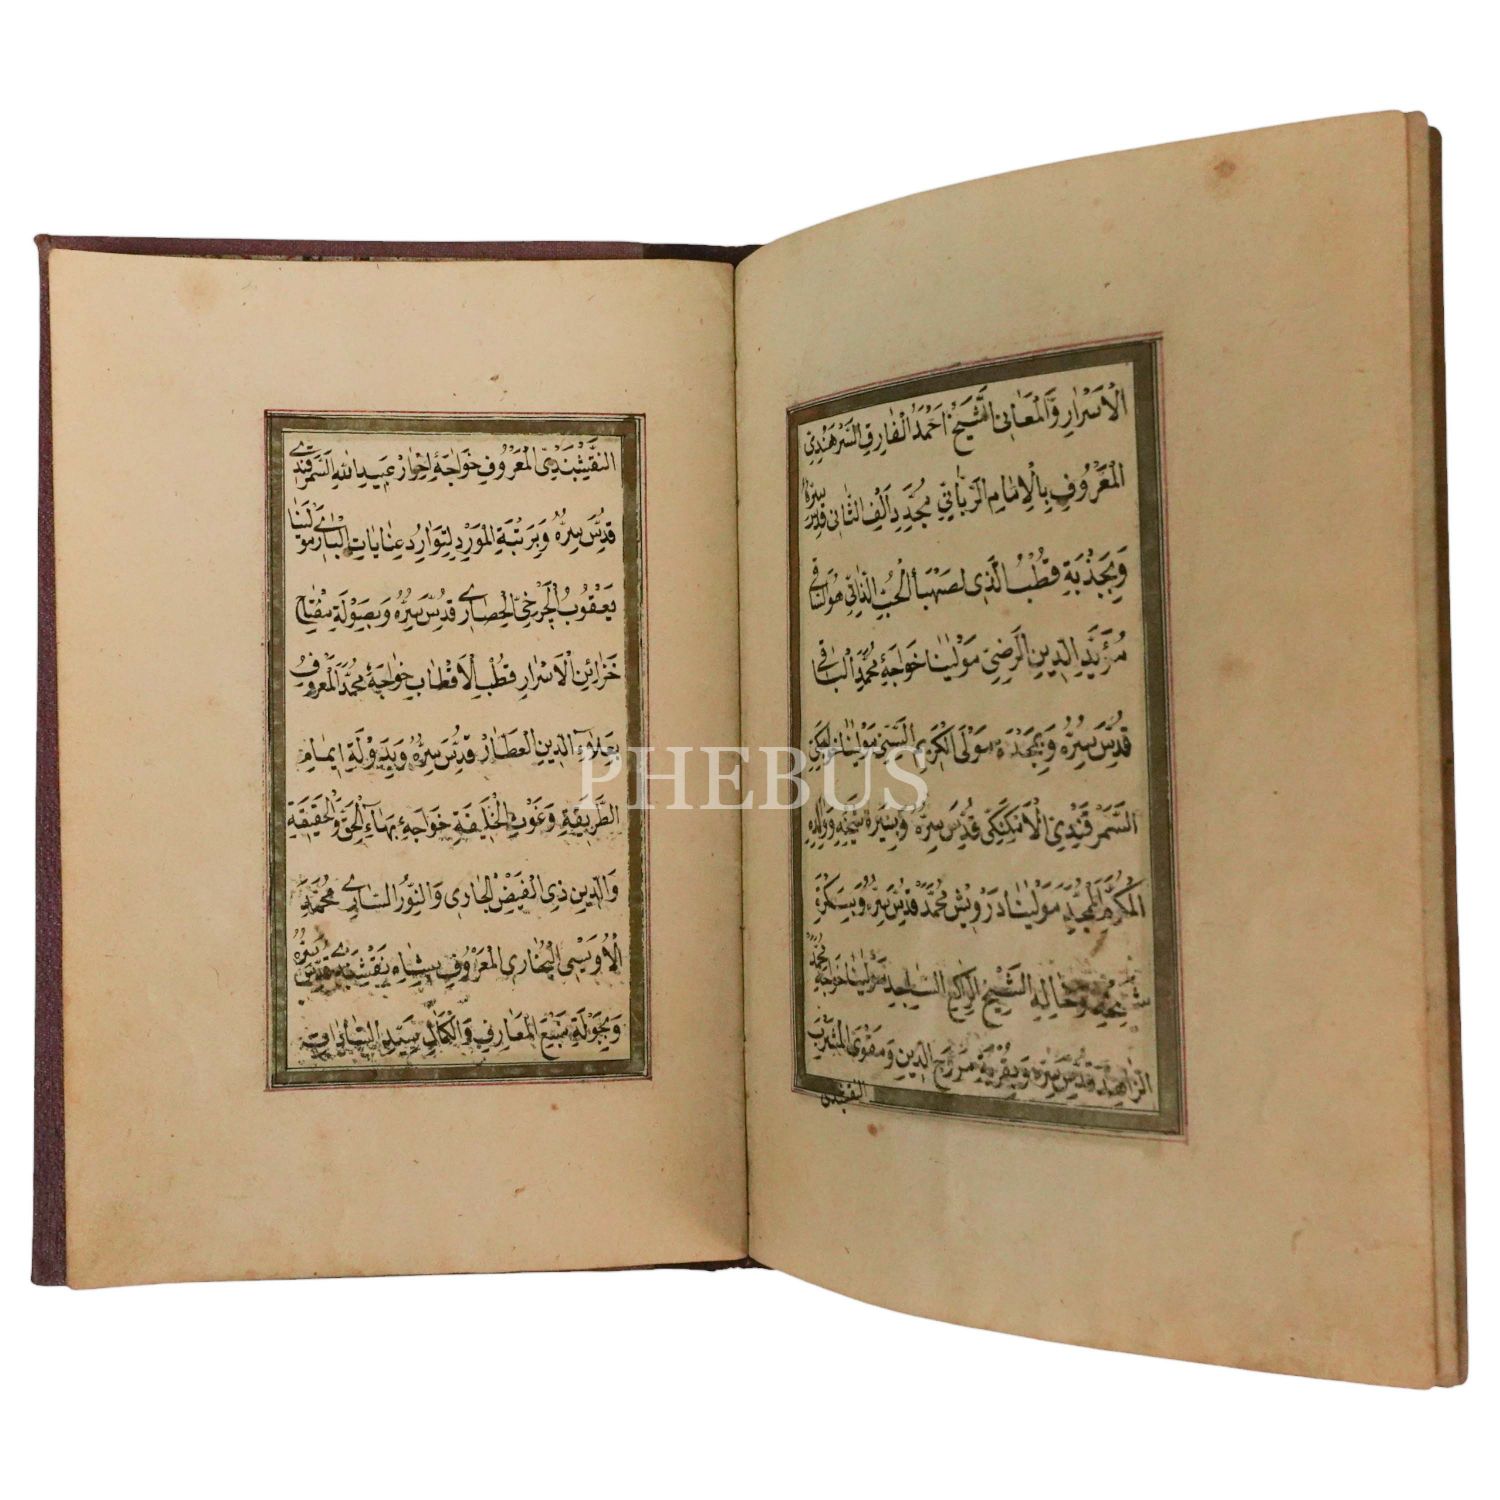 الْاَسْرَارِ وَالْمَعَانِى الشَّيْخْ اَحْمَدُ الْفَارِقِى السَّرْهَنْدِىّ
الْمَعْرُوفِ بِالْاِمَامِ الرَّبَّانِىّ مُجَدِّدِ اَلْفِ الثَّانِى قُدِّسَ سِرُّهُ
وَبِجَذْبَةِ قُطْبُ الَّذِى لصَهْبَأ الْحُبِّ الذَّاتِى هُوَ السَّاقِى
مُؤَيِّدَ الدِّينِ الرَّضِىّ مَوْلَيْنَا خَوَاجَهٔ مُحَمَّدْ الْبَاقِى
قُدِّسَ سِرُّهُ وَبِمَجْدَةِ مَوْلَى الْكَرِيمِ السَّنِىّ مَوْلَيْنَا خَواجَكِىّ
السَّمَرْقَنْدِىّ الْاَمْكَنَكِى قُدِّسَ سِرُّهُ وَبِسِيرَةِ شَيْخِهِ وَوَالِدِهِ
الْمُكَرَّمِ الْمُمَجَّدِ مَوْلَيْنَا دَرْوِيشْ مُحَمَّدْ قُدِّسَ سِرُّهُ وَبِسَكْرَةِ
شَيْخِهِ وَخَالِهِ الشَّيْخْ الرَّاكِعِ السَّاجِدِ مَوْلَيْنَا خَوَاجَهٔ مُحَمَّدْ
الزَّاهِدْ قُدِّسَ سِرُّهُ وَبِقُرْبَةِ مُرَوِّجِ الدِّينِ وَمُقَوِّى الْمَشْرَبِ
النقشبندى
النَّقْشْبَنْدِىّ الْمَعْرُوفِ خَوَاجَهٔ اِحْرَارْ عُبَيْدِ اللهِ السَّمَرْقَنْدِى
قُدِّسَ سِرُّهُ وَبِرَتْبَةِ الْمَوْرِدِ لِتَوَارُدِ عِنَايَاتِ الْبَارِى مَوْلَيْنَا
يَعْقُوبُ الْجَرْخِىّ الْحِصَارِى قُدِّسَ سِرُّهُ وَبِصَوْلَةِ مِفْتَاحِ
خَزَائِنِ الْاَسْرَارِ قُطْبِ الْاَقْطَابِ خَوَاجَهٔ مُحَمَّدْ الْمَعْرُوفُ
بِعَلَاءِ الدِّينِ الْعَطَّارْ قُدِّسَ سِرُّهُ وَبِدَوْلَةِ اِيمَامِ
الطَّرِيقَةِ وَغَوْثِ الْخَلِيفَةِ خَوَاجَهٔ بَهَاءِ الْحَقِّ وَالْحَقِيقَةِ
وَالدِّينِ ذِى الْفَيْضِ الْجَارِى وَالنُّورِ السَّارِى مُحَمَّدِ
الْاُوَيْسِى الْبُخَارِى الْمَعْرُوفِ بِشَاهِ نَقْشْبَنْدِى قُدِّسَ سِرُّهُ
وَبِجَوْلَةِ مَنْبَعِ الْمَعَارِفِ وَالْكَمَالِ سَيِّدِ السَّادَاتِ
PHEBUS